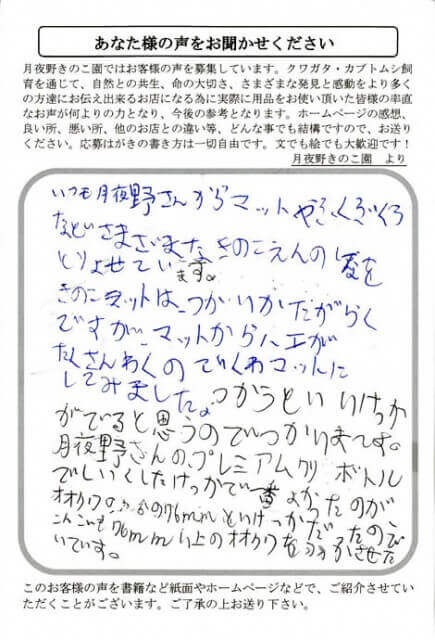 あなた様の声をお聞かせください
月夜野きのこ園ではお客様の声を募集しています。クワガタ・カブトムシ飼
育を通じて、自然との共生、命の大切さ、さまざまな発見と感動をより多く
の方達にお伝え出来るお店になる為に実際に用品をお使い頂いた皆様の率直
なお声が何よりの力となり、今後の参考となります。ホームページの感想、
良い所、悪い所、他のお店との違い等、どんな事でも結構ですので、お送り
ください。応募はがきの書き方は一切自由です。文でも絵でも大歓迎です！
月夜野きのこ園　より
いつも月夜野さんからマットや
などさまざまな、きのこえんの
とりよせています。
きのこマットは、つかいかたがらく
ですが、マットからハエが
たくさんわくので くわマットに
してみました。つかうといいけっか
がでると思うのでつかります。
月夜野さんの、プレミアムクリ ボトル
でしいくしたけっかで一番よかったのが
オオクワの 76mmといけっかだったので
こんごも76mm以上のオオクワを させた
いです。
このお客様の声を書籍など紙面やホームページなどで、ご紹介させてい
ただくことがございます。ご了承の上お送り下さい。